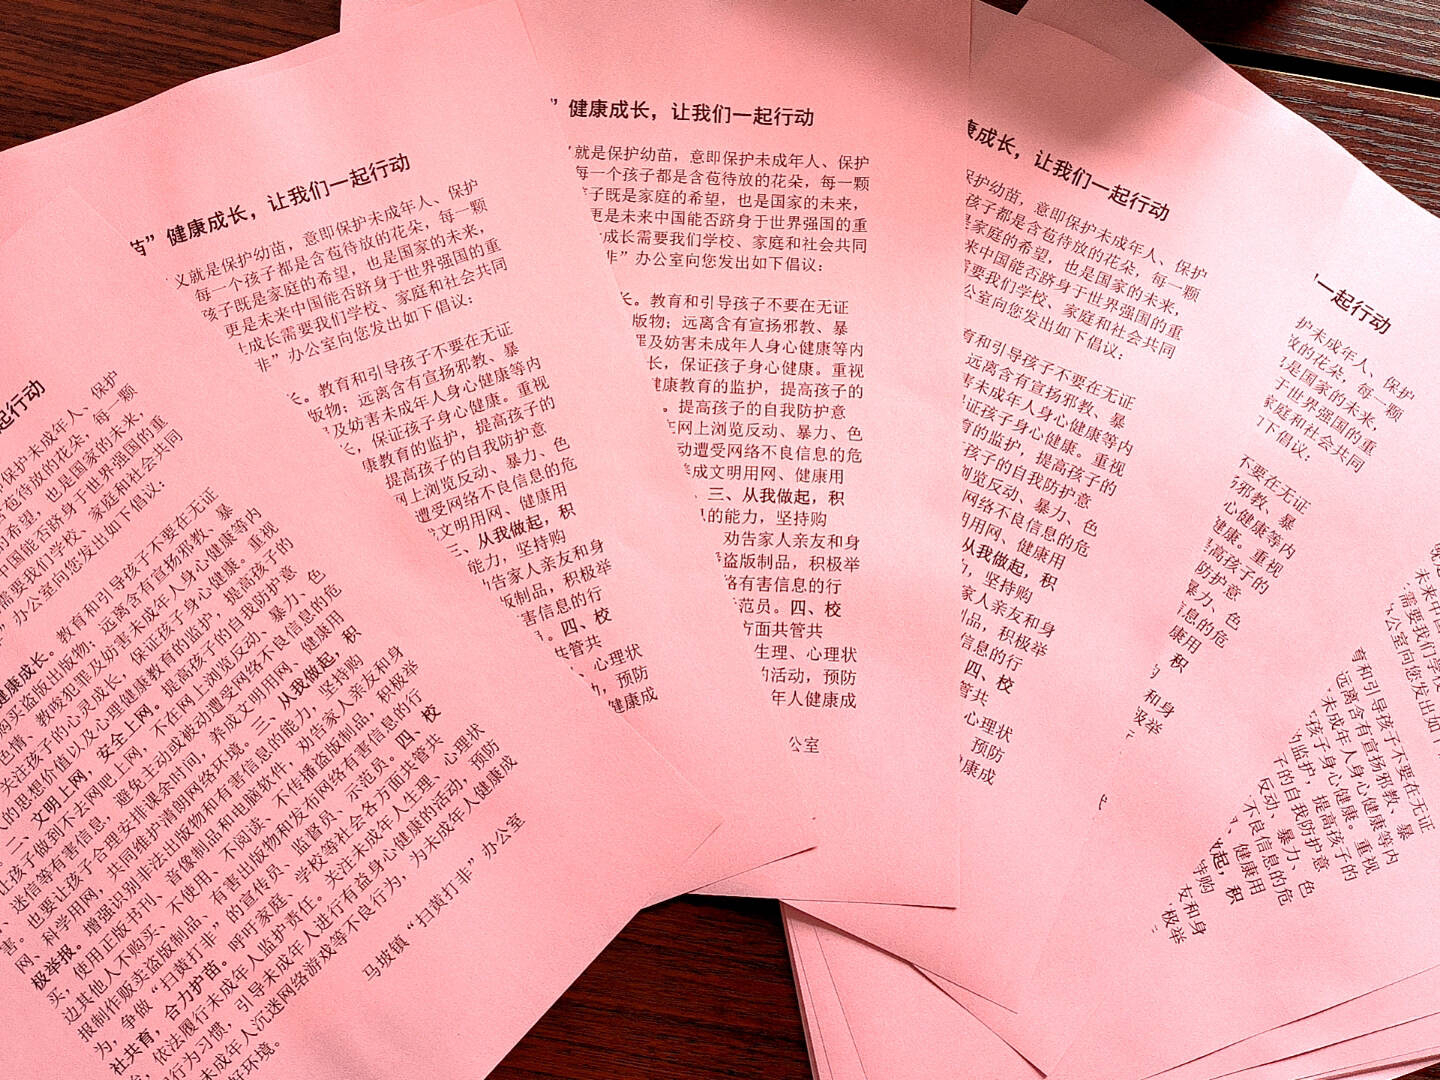 起行动
保护未成年人、保护
苞待放的花朵，每一颗
希望，也是国家的未来，
中国能否跻身于世界强国的重
需要我们学校、家庭和社会共同
办公室向您发出如下倡议：
健康成长。教育和引导孩子不要在无证
购买盗版出版物，远离含有宣扬邪教、暴
色情、教唆犯罪及妨害未成年人身心健康等内
关注孩子的心灵成长，保证孩子身心健康。重视
的思想价值以及心理健康教育的监护，提高孩子的
二、文明上网，安全上网。提高孩子的自我防护意
让孩子做到不去网吧上网，不在网上浏览反动、暴力、色
、迷信等有害信息，避免主动或被动遭受网络不良信息的危
害。也要让孩子合理安排课余时间，养成文明用网、健康用
网、科学用网，共同维护清朗网络环境。三、从我做起，积
极举报。增强识别非法出版物和有害信息的能力，坚持购
买，使用正版书刊、音像制品和电脑软件，劝告家人亲友和身
边其他人不购买、不使用、不阅读、不传播盗版制品，积极举
报制作贩卖盗版制品、有害出版物和发布网络有害信息的行
为，争做“扫黄打非”的宣传员、监督员、示范员。四、校
社共育，合力护苗。呼吁家庭、学校等社会各方面共管共
，依法履行未成年人监护责任。关注未成年人生理、心理状
行为习惯，引导未成年人进行有益身心健康的活动，预防
未成年人沉迷网络游戏等不良行为，为未成年人健康成
好环境。
马坡镇“扫黄打非”办公室
苗”健康成长，让我们一起行动
义就是保护幼苗，意即保护未成年人、保护
每一个孩子都是含苞待放的花朵，每一颗
孩子既是家庭的希望，也是国家的未来，
更是未来中国能否跻身于世界强国的重
成长需要我们学校、家庭和社会共同
非”办公室向您发出如下倡议：
长。教育和引导孩子不要在无证
版物；远离含有宣扬邪教、暴
及妨害未成年人身心健康等内
，保证孩子身心健康。重视
康教育的监护，提高孩子的
提高孩子的自我防护意
网上浏览反动、暴力、色
遭受网络不良信息的危
文明用网、健康用
三、从我做起，积
能力，坚持购
告家人亲友和身
版制品，积极举
害信息的行
。四、校
管共
、心理状
，预防
健康成
”健康成长，让我们一起行动
就是保护幼苗，意即保护未成年人、保护
每一个孩子都是含苞待放的花朵，每一颗
孩子既是家庭的希望，也是国家的未来，
更是未来中国能否跻身于世界强国的重
成长需要我们学校、家庭和社会共同
非”办公室向您发出如下倡议：
长。教育和引导孩子不要在无证
版物；远离含有宣扬邪教、暴
罪及妨害未成年人身心健康等内
长，保证孩子身心健康。重视
健康教育的监护，提高孩子的
。提高孩子的自我防护意
在网上浏览反动、暴力、色
动遭受网络不良信息的危
养成文明用网、健康用
三、从我做起，积
的能力，坚持购
劝告家人亲友和身
盗版制品，积极举
络有害信息的行
范员。四、校
方面共管共
生理、心理状
的活动，预防
年人健康成
公室
康成长，让我们一起行动
保护幼苗，意即保护未成年人、保护
孩子都是含苞待放的花朵，每一颗
是家庭的希望，也是国家的未来，
未来中国能否跻身于世界强国的重
需要我们学校、家庭和社会共同
公室向您发出如下倡议：
育和引导孩子不要在无证
远离含有宣扬邪教、暴
害未成年人身心健康等内
证孩子身心健康。重视
育的监护，提高孩子的
孩子的自我防护意
浏览反动、暴力、色
网络不良信息的危
明用网、健康用
从我做起，积
，坚持购
家人亲友和身
制品，积极举
信息的行
四、校
管共
心理状
预防
健康成
一起行动
护未成年人、保护
放的花朵，每一颗
是国家的未来，
于世界强国的重
家庭和社会共同
如下倡议：
不要在无证
邪教、暴
心健康等内
健康。重视
提高孩子的
防护意
暴力、色
信息的危
康用
积
购
和身
极举
未来中国
需要我们学校
公室向您发出如
育和引导孩子不要在无证
远离含有宣扬邪教、暴
未成年人身心健康等内
孩子身心健康。重视
监护，提高孩子的
子的自我防护意
反动、暴力、色
不良信息的危
、健康用
做起，积
持购
友和身
极举